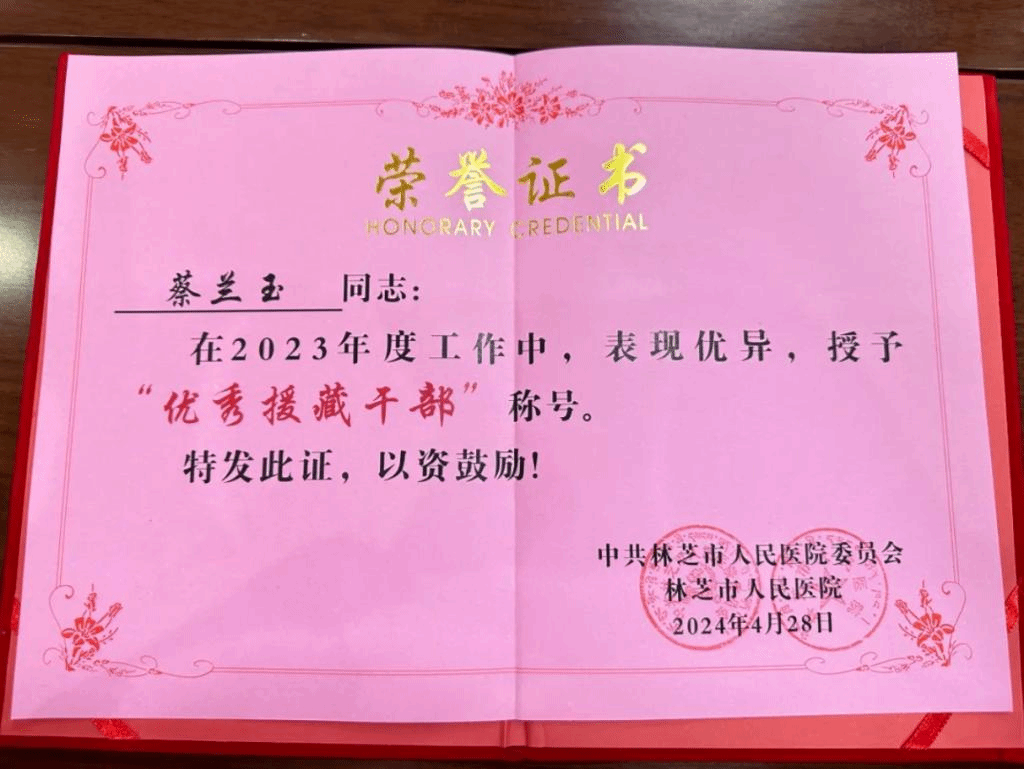 荣誉证书
HONORARY CREDENTIAL
蔡兰玉 同志:
在2023年度工作中，表现优异，授予
“优秀援藏干部”称号。
特发此证，以资鼓励!
中共林芝市人民医院委员会
林芝市人民医院
2024年4月28日